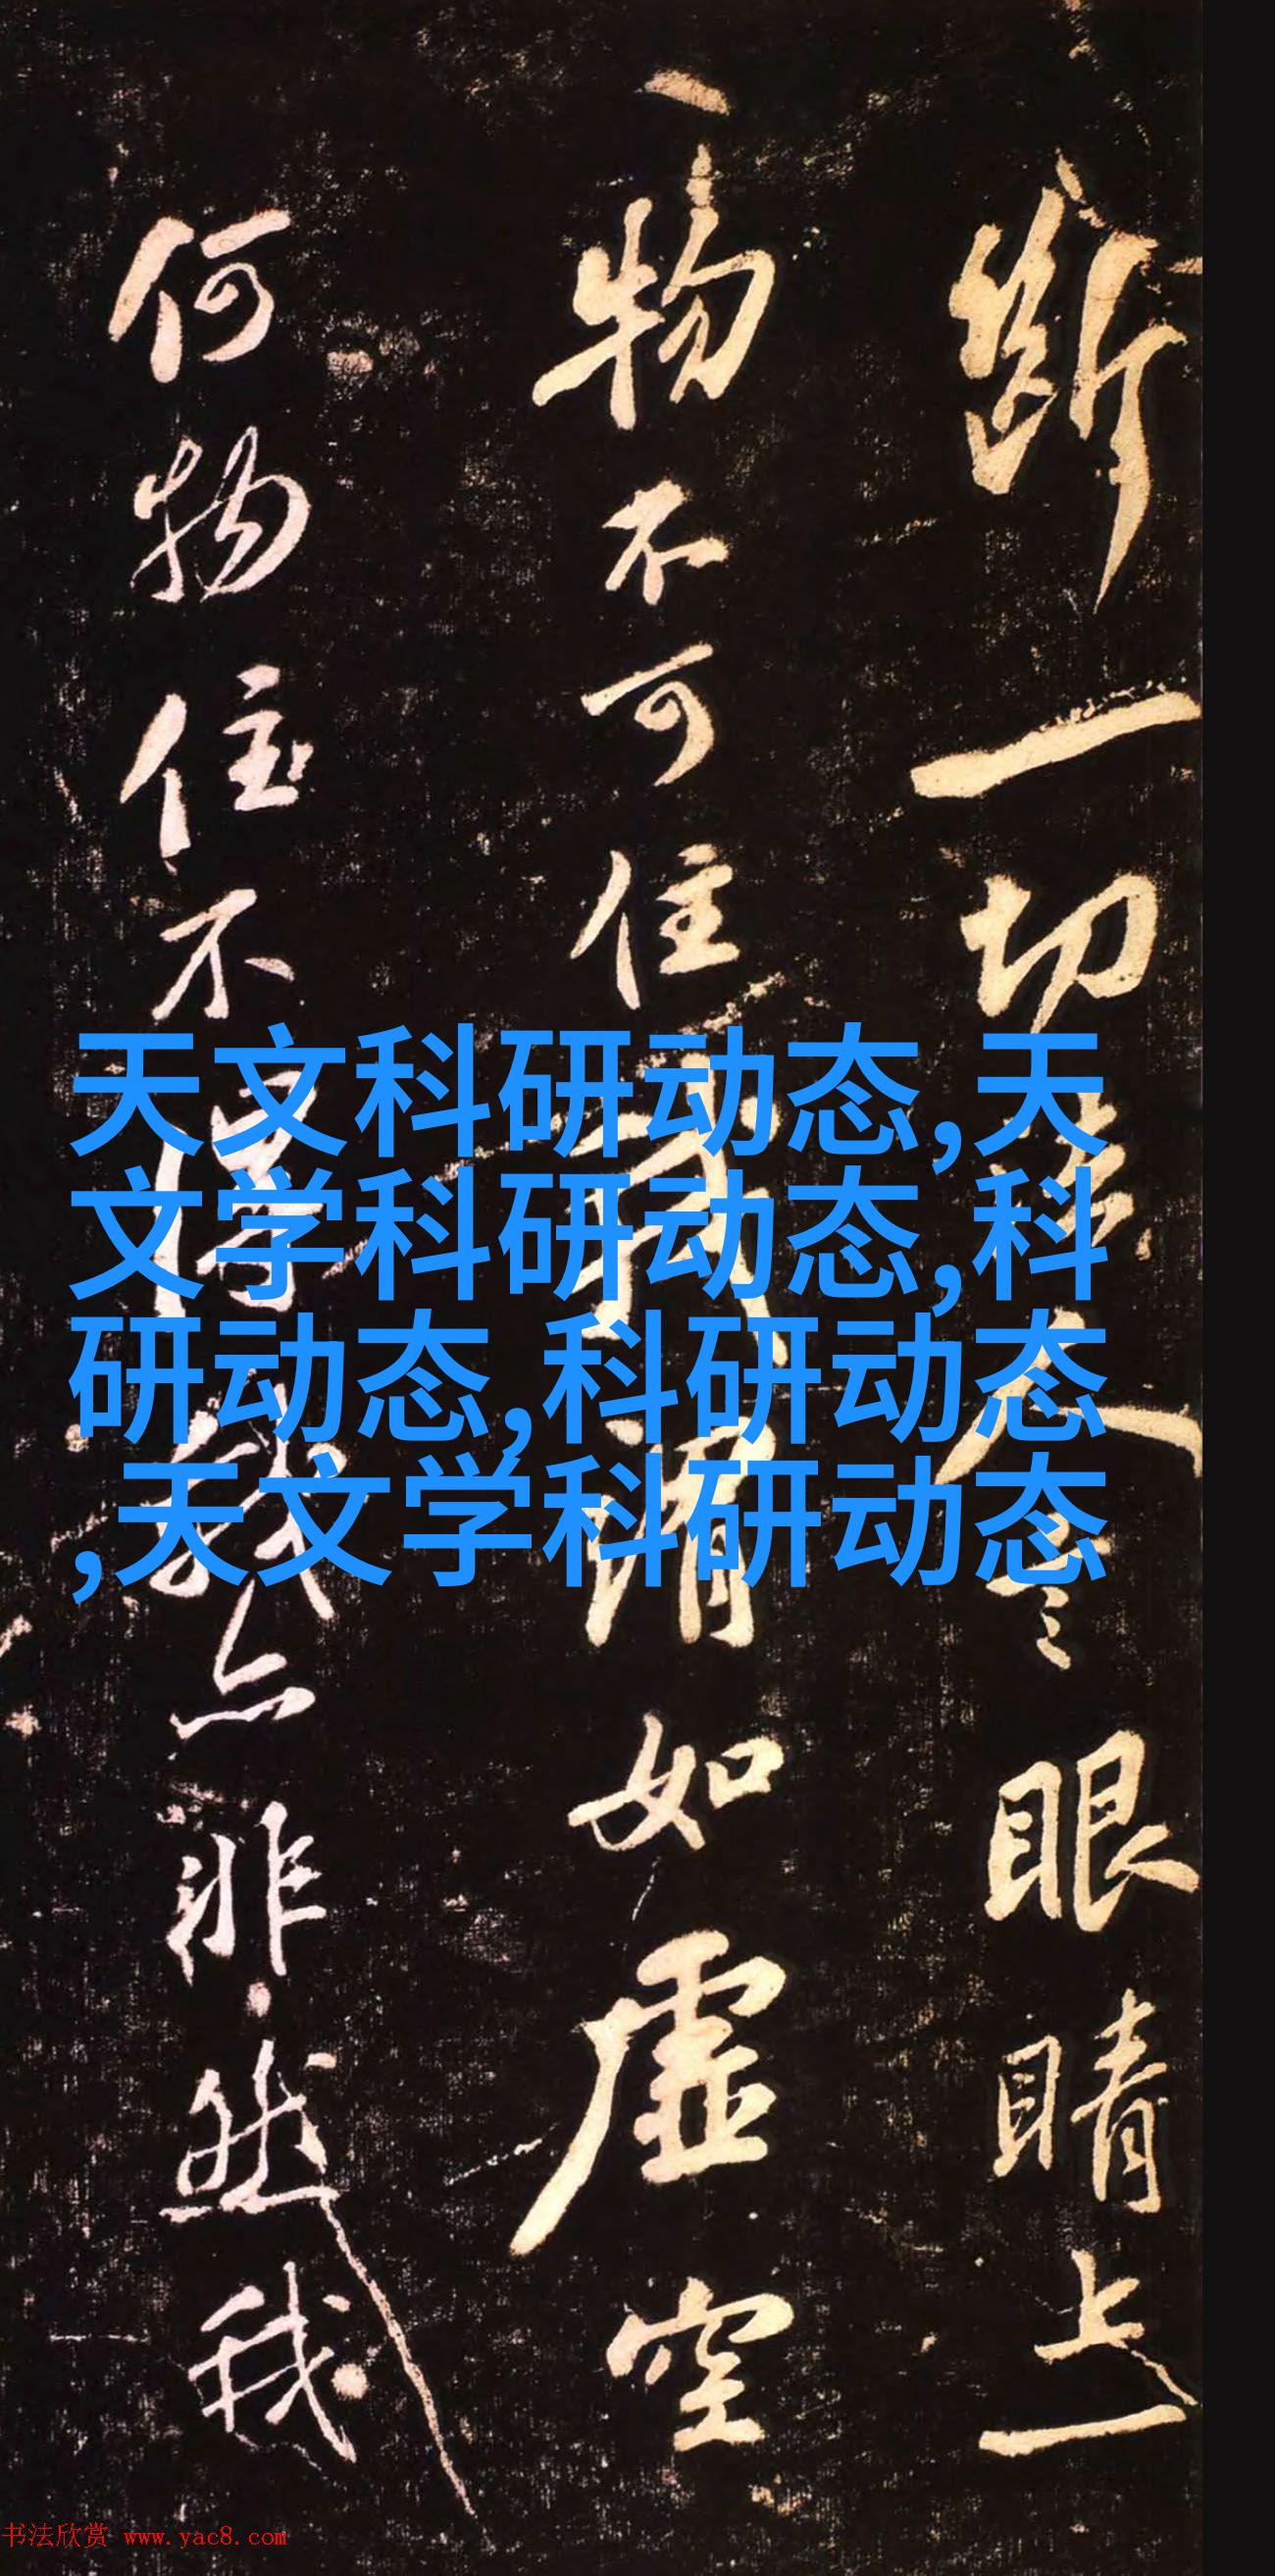 天文科研动态,天
文学科研动态,科
研动态,科研动态
,天文学科研动态
斷一切人眼睛上一
物不可住我謂如虛空
何物住不得我非然我
书法欣赏 www.yac8.com